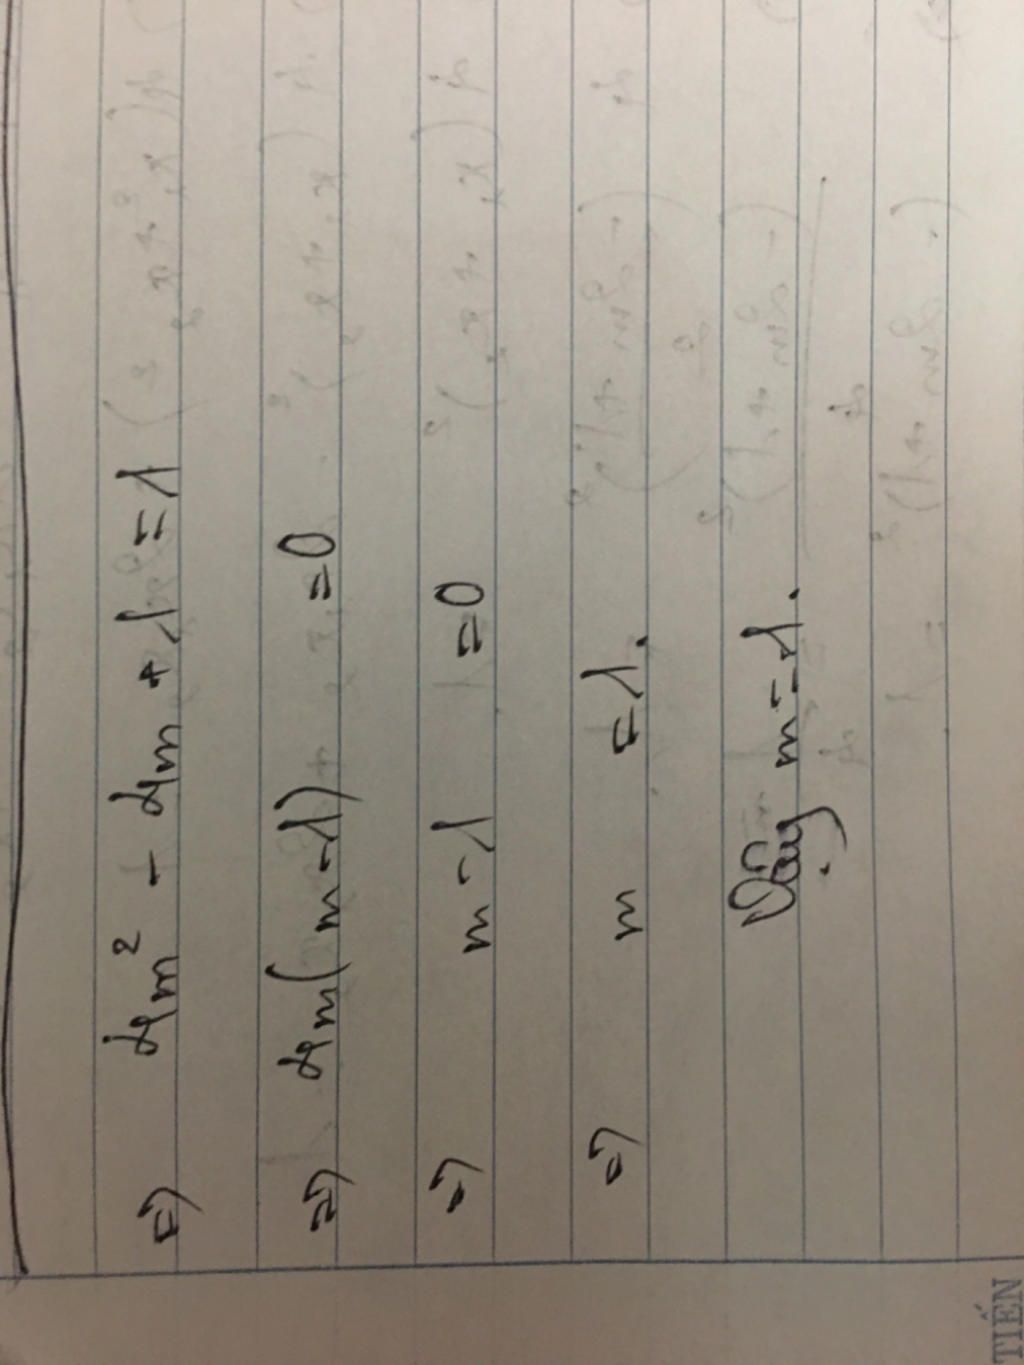 => 4m² - 4m + 1 = 1
=> 4m(m-1) = 0
=> m - 1 = 0
=> m = 1.
Vậy m = 1.
TIẾN